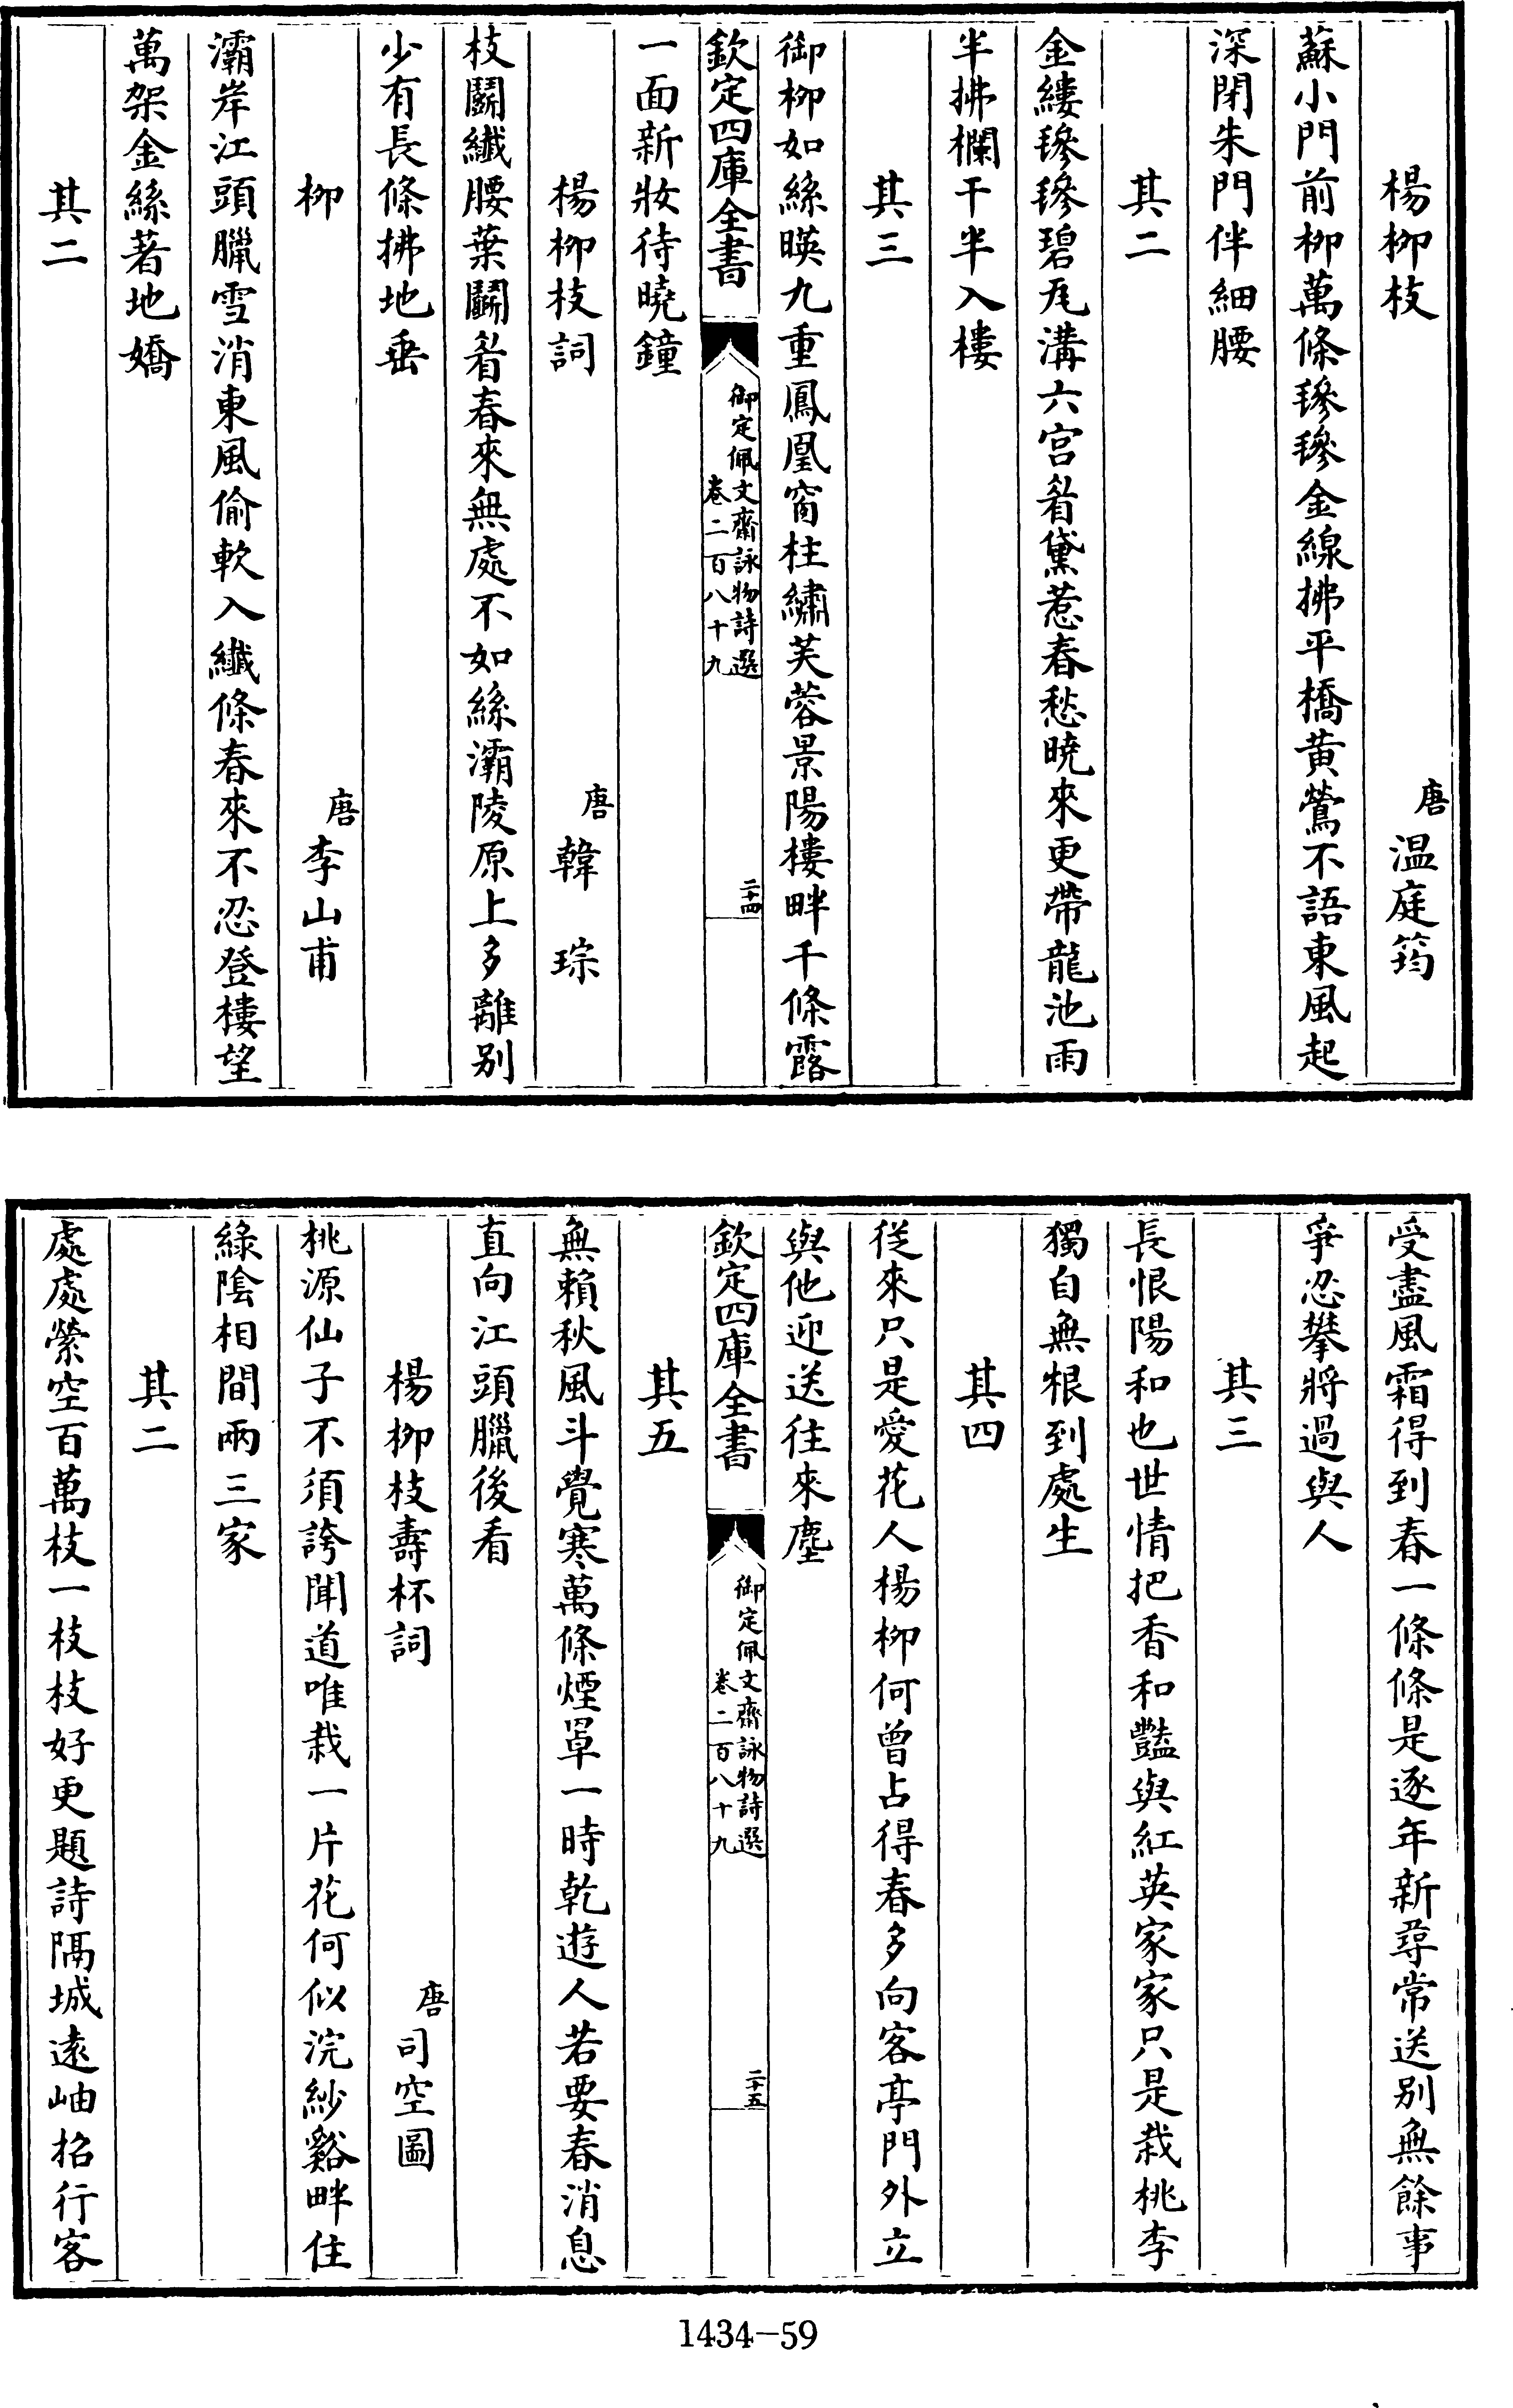 楊柳枝　唐溫庭筠
蘇小門前柳萬條毿毿金線拂平橋黃鶯不語東風起
深閉朱門伴細腰
其二
金縷毿毿碧瓦溝六宫㸔黛惹春愁曉來更帶龍池雨
半拂欄干半入樓
其三
御柳如絲暎九重鳳凰窗柱繡芙蓉景陽樓畔千條露
欽定四庫全書
御定佩文齋詠物詩選
卷二百八十九
二十四
一面新妝待曉鐘
楊柳枝詞　唐韓琮
枝鬭纖腰葉鬭眉春來無處不如絲灞陵原上多離别
少有長條拂地垂
柳　唐李山甫
灞岸江頭臘雪消東風偷軟入纖條春來不忍登樓望
萬架金絲著地嬌
其二
受盡風霜得到春一條條是逐年新尋常送别無餘事
爭忍攀將過與人
其三
長恨陽和也世情把香和豔與紅英家家只是栽桃李
獨自無根到處生
其四
從來只是愛花人楊柳何曾占得春多向客亭門外立
與他迎送往來塵
欽定四庫全書
御定佩文齋詠物詩選
卷二百八十九
二十五
其五
無賴秋風斗覺寒萬條煙罩一時乾遊人若要春消息
直向江頭臘後看
楊柳枝壽杯詞　唐司空圖
桃源仙子不須誇聞道唯栽一片花何似浣紗谿畔住
綠陰相間兩三家
其二
處處縈空百萬枝一枝枝好更題詩隔城遠岫招行客
1434-59